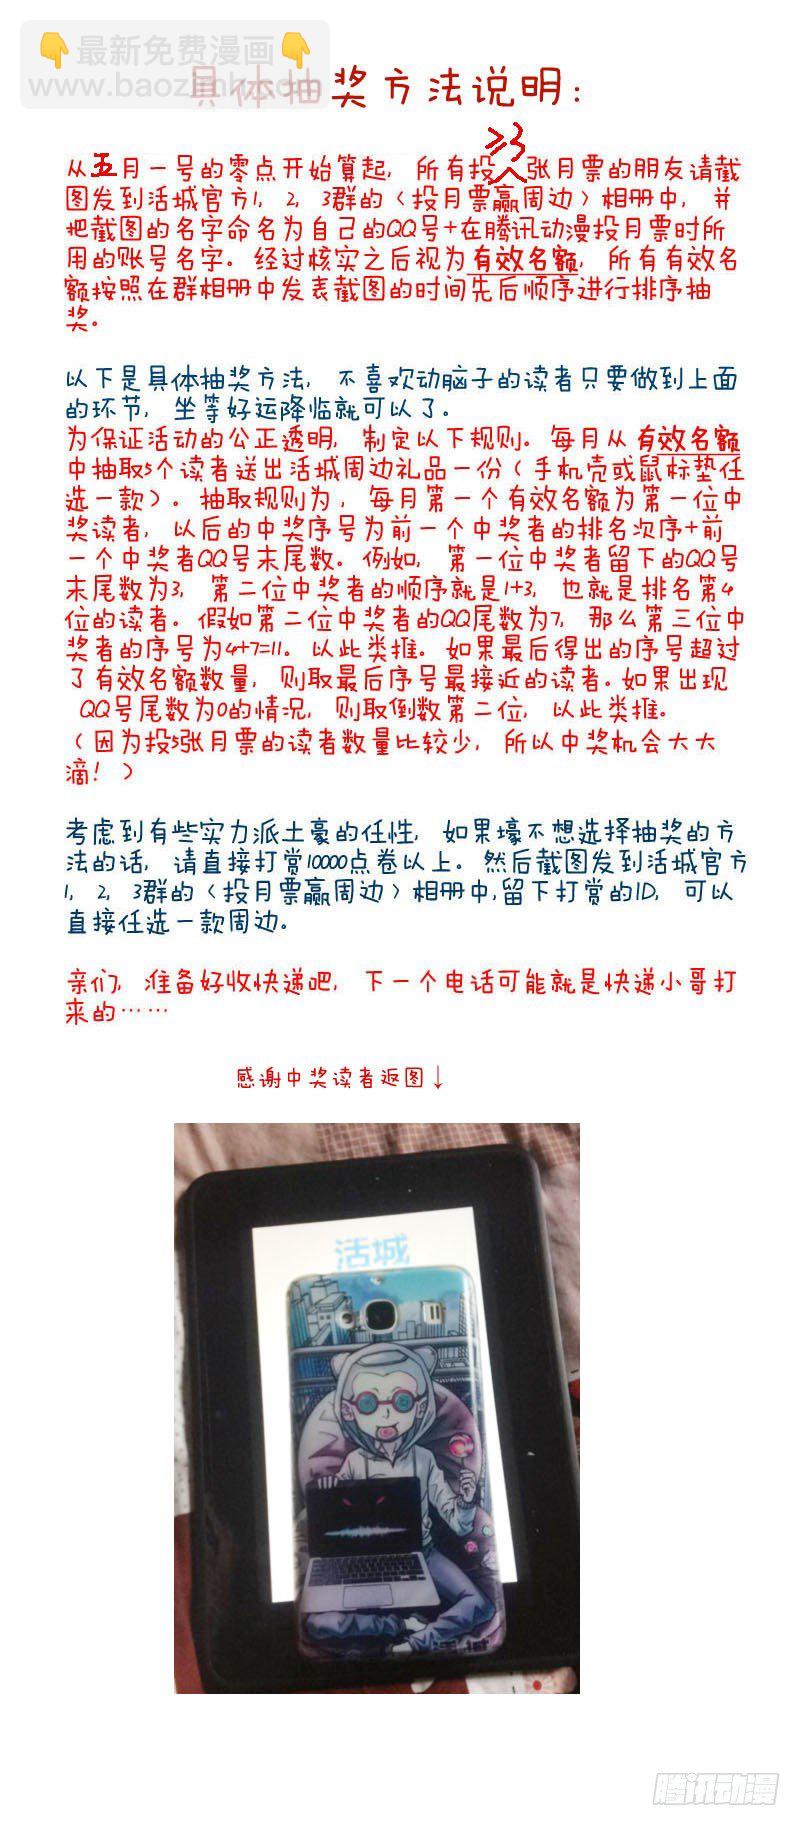 最新免费漫画
www.baozimh.com
具体抽奖方法说明：
≥3
从五月一号的零点开始算起，所有投 张月票的朋友请截
图发到活城官方1，2，3群的（投月票赢周边）相册中，并
把截图的名字命名为自己的QQ号+在腾讯动漫投月票时所
用的账号名字。经过核实之后视为有效名额，所有有效名
额按照在群相册中发表截图的时间先后顺序进行排序抽
奖。
以下是具体抽奖方法，不喜欢动脑子的读者只要做到上面
的环节，坐等好运降临就可以了。
为保证活动的公正透明，制定以下规则。每月从有效名额
中抽取5个读者送出活城周边礼品一份（手机壳或鼠标垫任
选一款）。抽取规则为，每月第一个有效名额为第一位中
奖读者，以后的中奖序号为前一个中奖者的排名次序+前
一个中奖者QQ号末尾数。例如，第一位中奖者留下的QQ号
末尾数为3，第二位中奖者的顺序就是1+3，也就是排名第4
位的读者。假如第二位中奖者的QQ尾数为7，那么第三位中
奖者的序号为4+7=11。以此类推。如果最后得出的序号超过
了有效名额数量，则取最后序号最接近的读者。如果出现
QQ号尾数为0的情况，则取倒数第二位，以此类推。
（因为投5张月票的读者数量比较少，所以中奖机会大大
滴！）
考虑到有些实力派土豪的任性，如果壕不想选择抽奖的方
法的话，请直接打赏10000点卷以上。然后截图发到活城官方
1，2，3群的（投月票赢周边）相册中,留下打赏的ID，可以
直接任选一款周边。
亲们，准备好收快递吧，下一个电话可能就是快递小哥打
来的……
感谢中奖读者返图↓
活城
活城
腾讯动漫